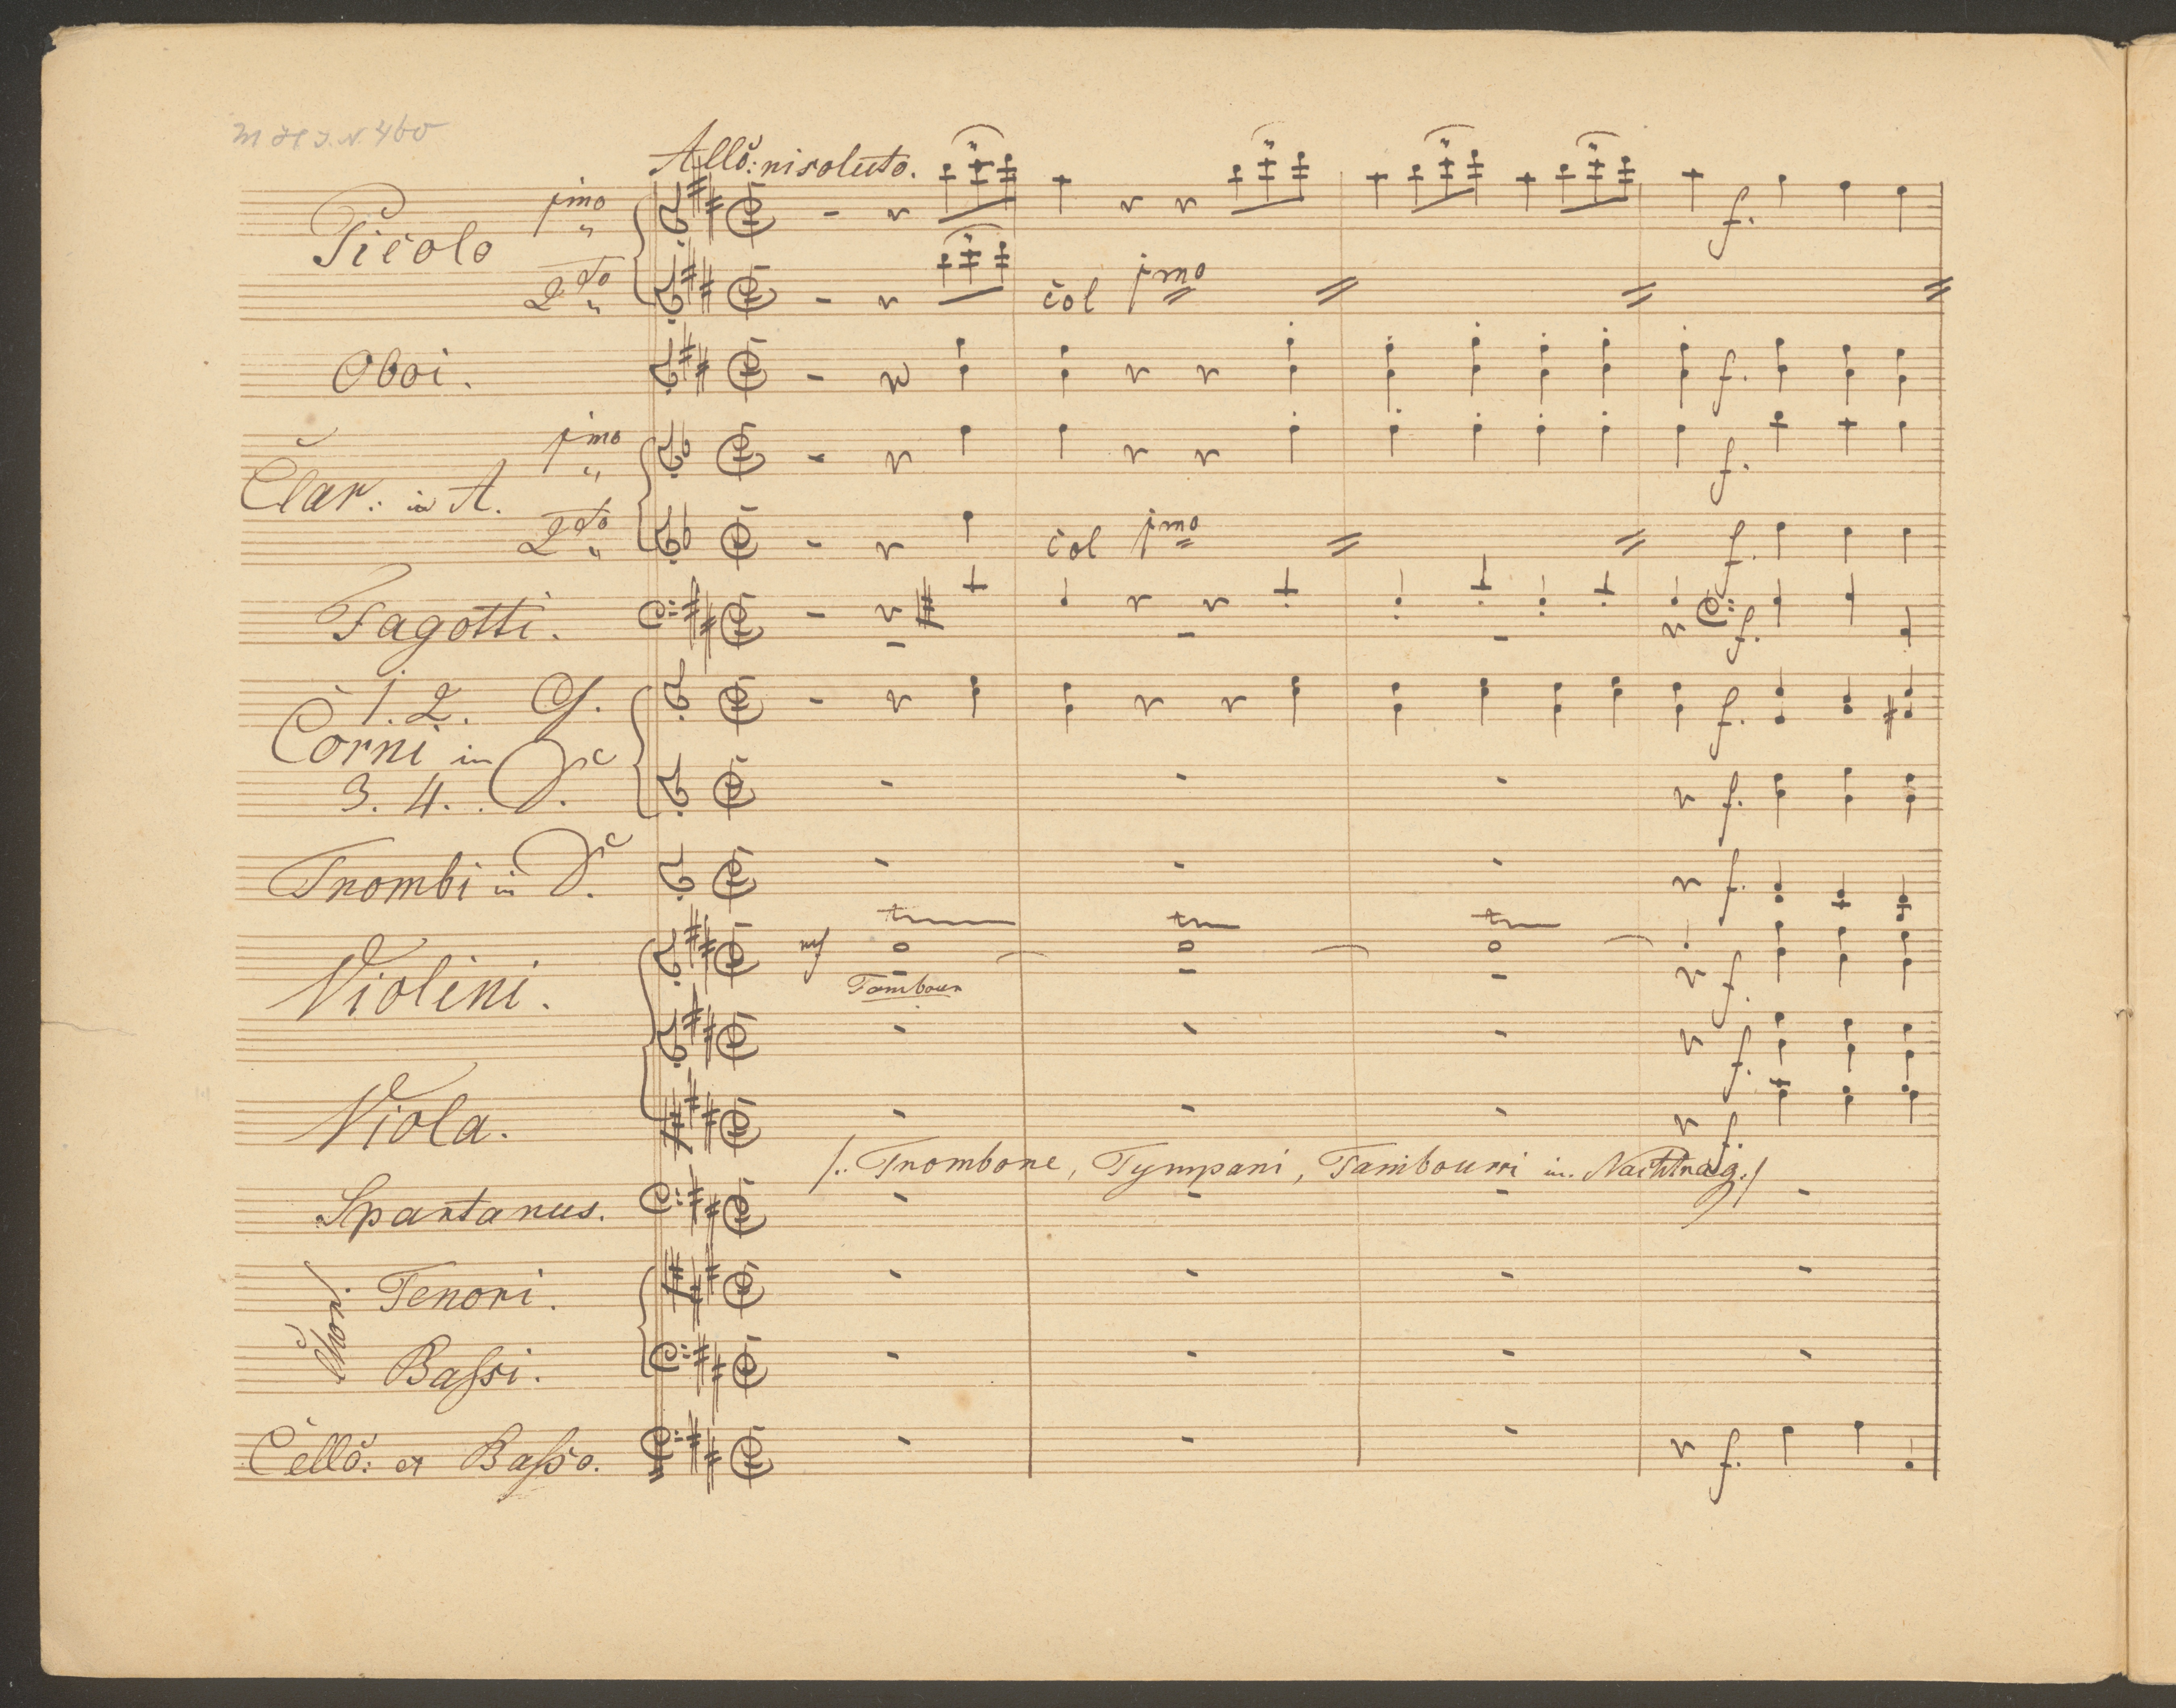 M H I.N. 460
Allo: risoluto.
Picolo jmo
2do
col jmo
f.
Oboi.
f.
Clar: in A. jmo
f.
2do
col jmo
f.
Fagotti.
f.
1. 2. G.
Corni in
3. 4. D.
f.
f.
Trombi in D.
f.
Violini.
mf
tr
tr
tr
Tambour
f.
f.
Viola.
f.
/.. Trombone, Tympani, Tambourri im Nachtrag. /
Spartanus.
Chor.
Tenori.
Baſsi.
Cello: et Baſso.
f.